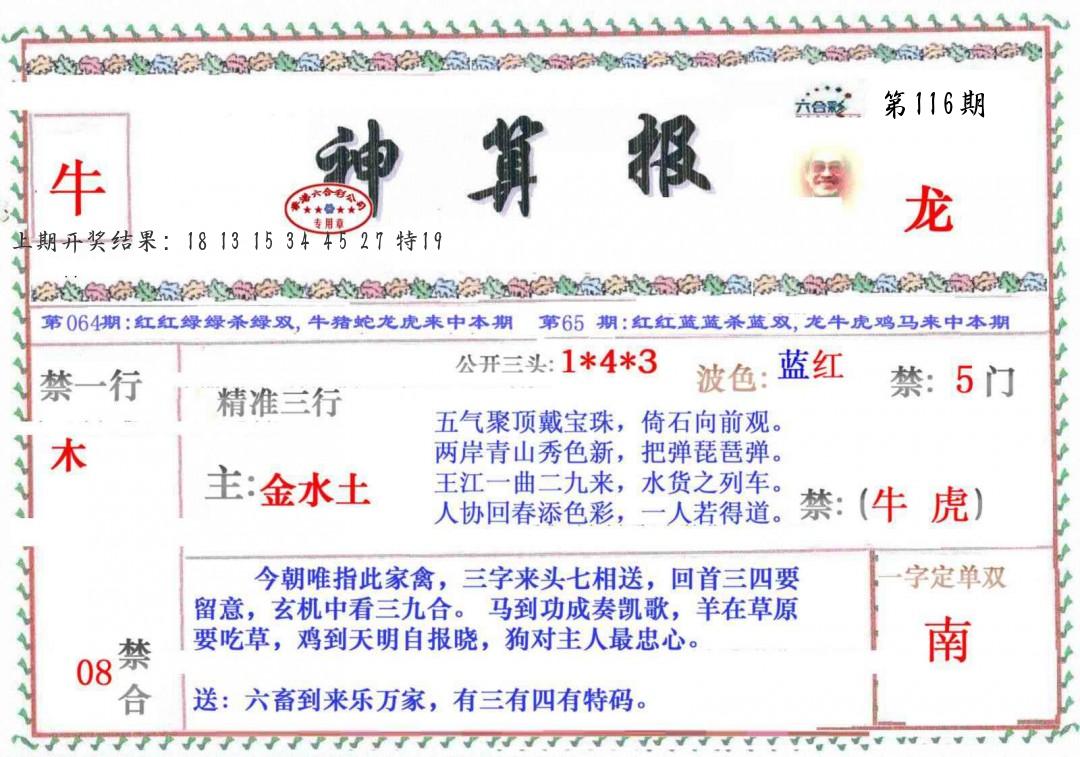 六合彩
第116期
牛
神算报
香港六合彩公司
专用章
龙
上期开奖结果：18 13 15 34 45 27 特19
第064期:红红绿绿杀绿双,牛猪蛇龙虎来中本期 第65 期:红红蓝蓝杀蓝双,龙牛虎鸡马来中本期
禁一行
木
精准三行
主:金水土
公开三头:1*4*3
波色:蓝红
禁: 5门
五气聚顶戴宝珠，倚石向前观。
两岸青山秀色新，把弹琵琶弹。
王江一曲二九来，水货之列车。
人协回春添色彩，一人若得道。
禁:(牛 虎)
08
禁合
今朝唯指此家禽，三字来头七相送，回首三四要
留意，玄机中看三九合。 马到功成奏凯歌，羊在草原
要吃草，鸡到天明自报晓，狗对主人最忠心。
送：六畜到来乐万家，有三有四有特码。
一字定单双
南